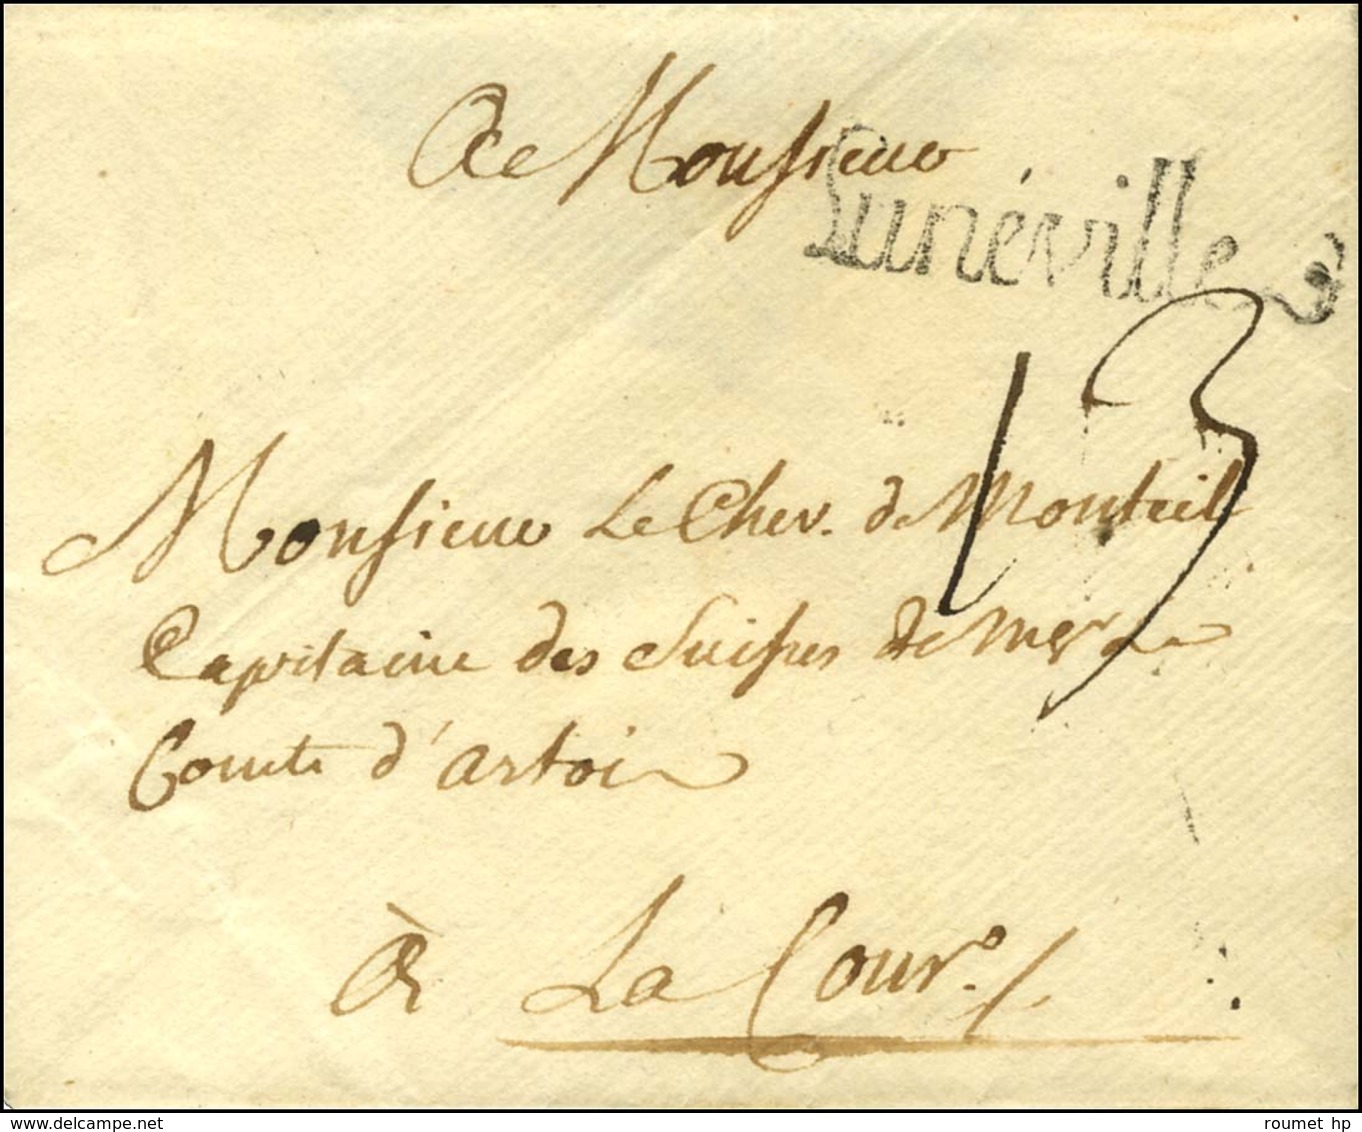 A Monsieur
Lunéville
13
Monsieur Le Chev. de Monteil
Capitaine des Suisses de Mgr Le
Comte d'artois
à La Cour./.
delcampe.net
roumet hp